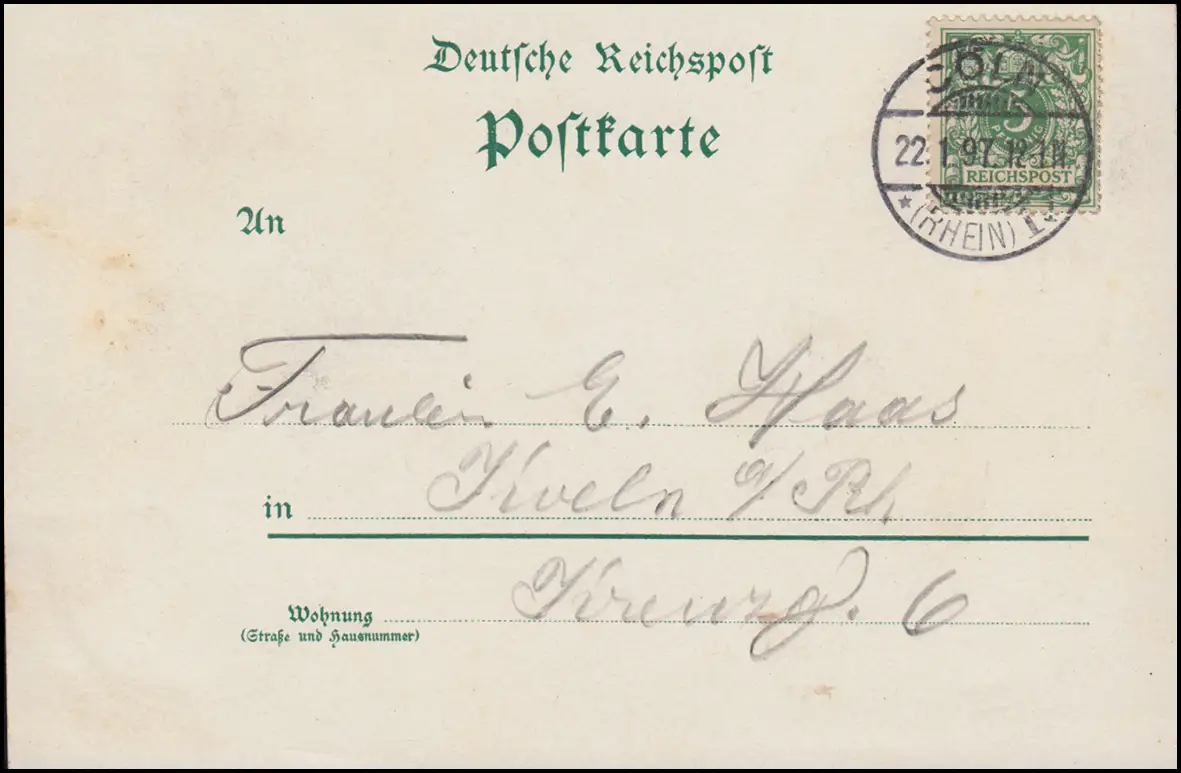 Deutsche Reichspost
Postkarte
CÖLN
5
PFENNIG
22.1.97.12-1N.
REICHSPOST
* (RHEIN)
An
Fraulein E. Haas
in Koeln a/Rh
Kreuzg. 6
Wohnung
(Straße und Hausnummer)